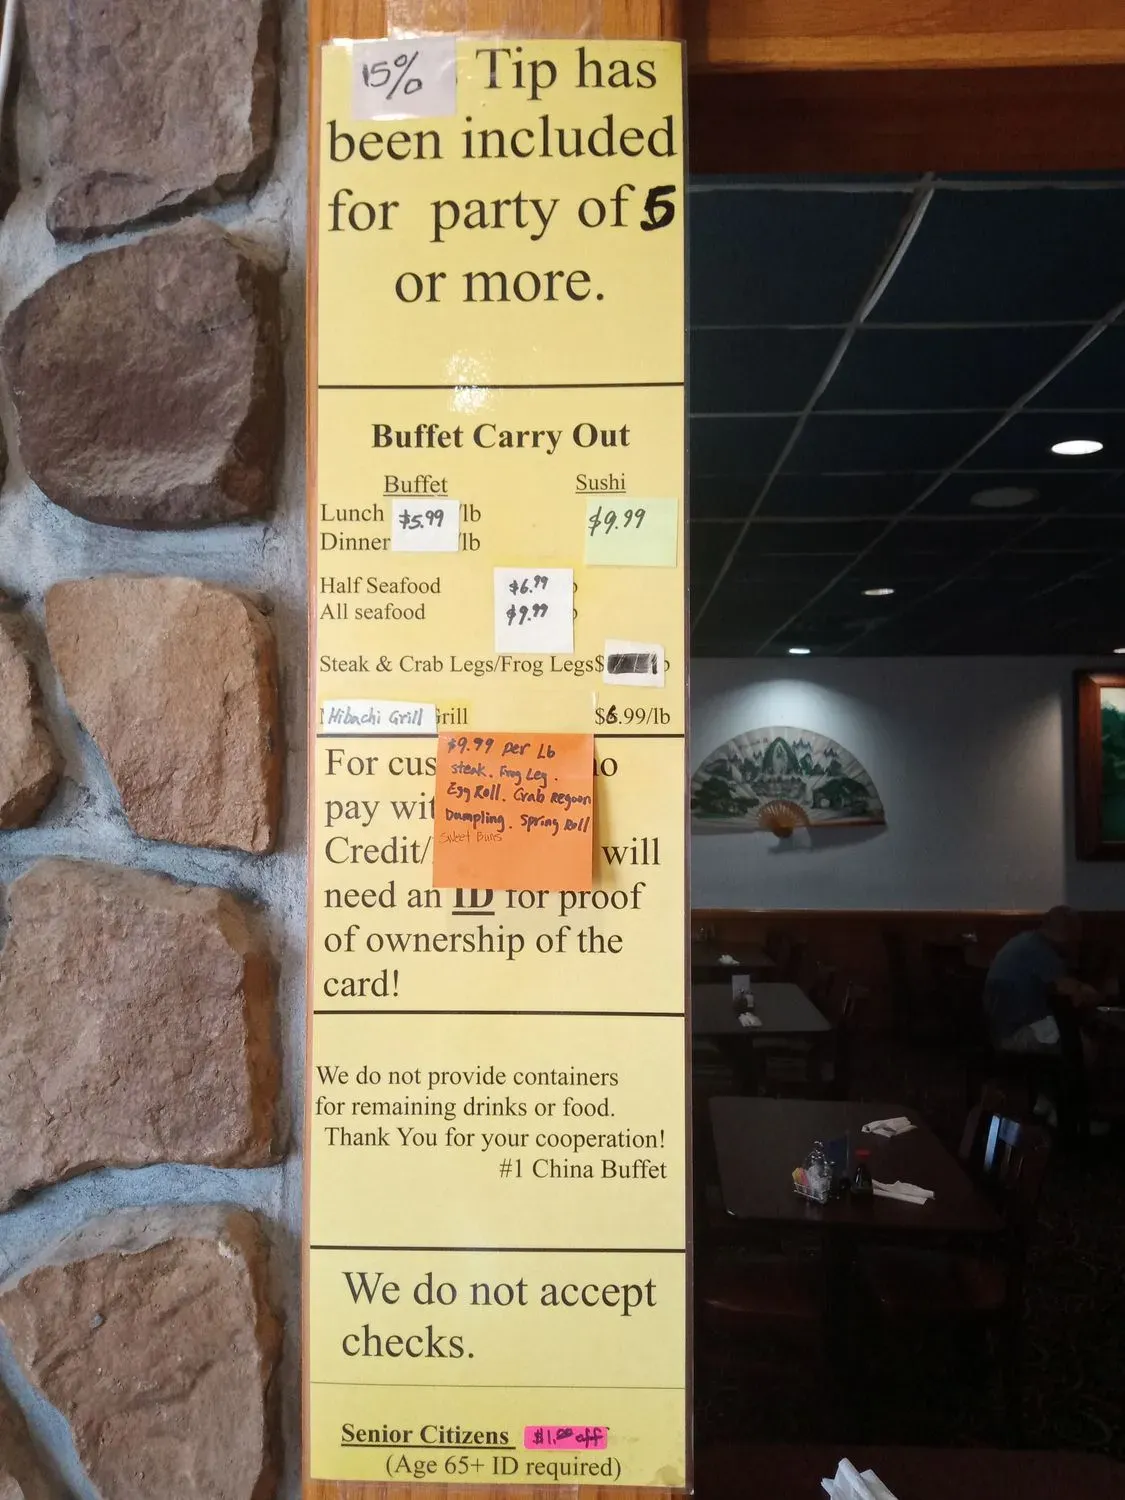 15% Tip has
been included
for party of 5
or more.
Buffet Carry Out
Buffet Sushi
Lunch $5.99 /lb $9.99
Dinner /lb
Half Seafood $6.99
All seafood $9.99
Steak & Crab Legs/Frog Legs$
Hibachi Grill Grill $6.99/lb
$9.99 per Lb
Steak. Frog Leg.
Egg Roll. Crab Regoon
Dumpling. Spring Roll
Sweet Buns
For cus
pay wit
Credit/ will
need an ID for proof
of ownership of the
card!
We do not provide containers
for remaining drinks or food.
Thank You for your cooperation!
#1 China Buffet
We do not accept
checks.
Senior Citizens $1.00 off
(Age 65+ ID required)